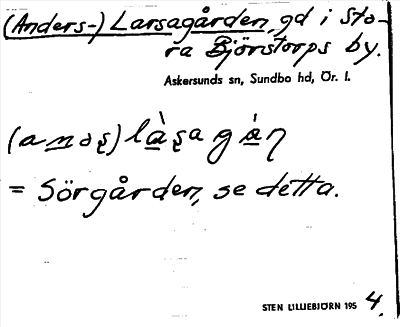 (Anders-) Larsagården, gd i Sto-
ra Björstorps by.
Askersunds sn, Sundbo hd, Ör. l.
= Sörgården, se detta.
STEN LILLIEBJÖRN 195 4.